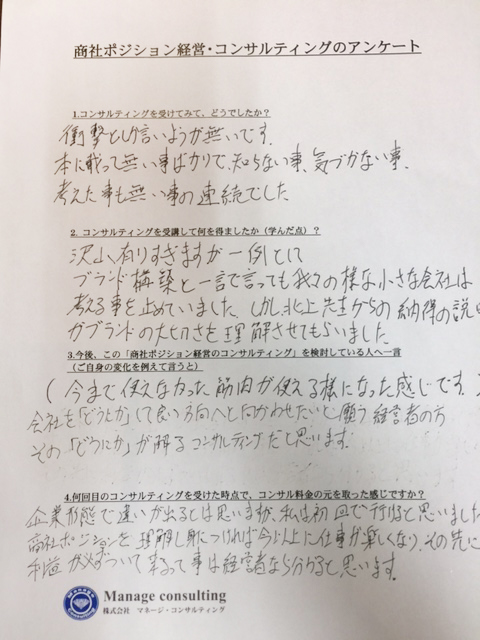 商社ポジション経営・コンサルティングのアンケート
1.コンサルティングを受けてみて、どうでしたか？
衝撃としか言いようが無いです。
本に載って無い事ばかりで、知らない事、気づかない事、
考えた事も無い事の連続でした
2. コンサルティングを受講して何を得ましたか（学んだ点）？
沢山有りすぎますが一例として
ブランド構築と一言で言っても我々の様な小さな会社は
考える事を止めていました。しかし北上先生からの納得の説
がブランドの大切さを理解させてもらいました。
3.今後、この「商社ポジション経営のコンサルティング」を検討している人へ一言
（ご自身の変化を例えて言うと）
（今まで使えなかった筋肉が使える様になった感じです。
会社を「どうにか」して良い方向へと向かわせたいと願う経営者の方
その「どうにか」が解るコンサルティングだと思います。
4.何回目のコンサルティングを受けた時点で、コンサル料金の元を取った感じですか？
企業形態で違いが出るとは思いますが、私は初回で行けると思いました
商社ポジションを理解し身につければ今以上に仕事が楽しくなり、その先に
利益が必ずついて来るって事は経営者なら分かると思います。
MANAGE
Manage consulting
株式会社 マネージ・コンサルティング